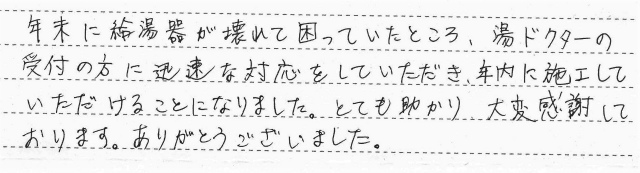 年末に給湯器が壊れて困っていたところ、湯ドクターの
受付の方に迅速な対応をしていただき、年内に施工して
いただけることになりました。とても助かり 大変感謝して
おります。ありがとうございました。